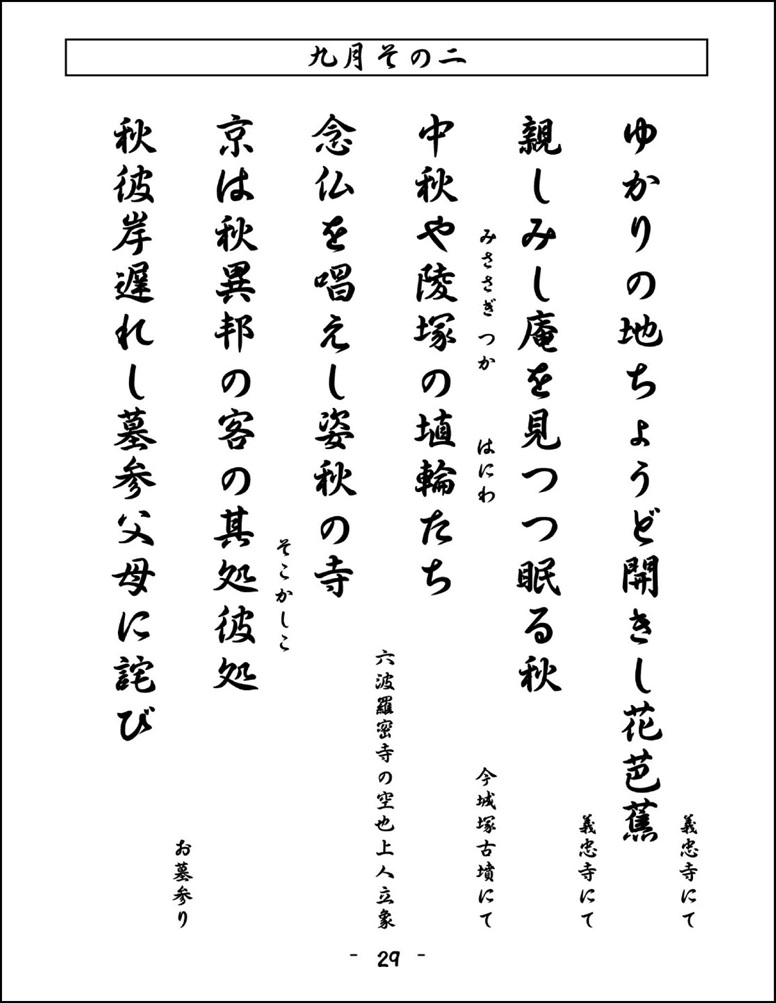 九月その二
ゆかりの地ちょうど開きし花芭蕉
義忠寺にて
親しみし庵を見つつ眠る秋
義忠寺にて
みささぎ つか はにわ
中秋や陵塚の埴輪たち
今城塚古墳にて
念仏を唱えし姿秋の寺
六波羅密寺の空也上人立象
そこかしこ
京は秋異邦の客の其処彼処
秋彼岸遅れし墓参父母に詫び
お墓参り
- 29 -